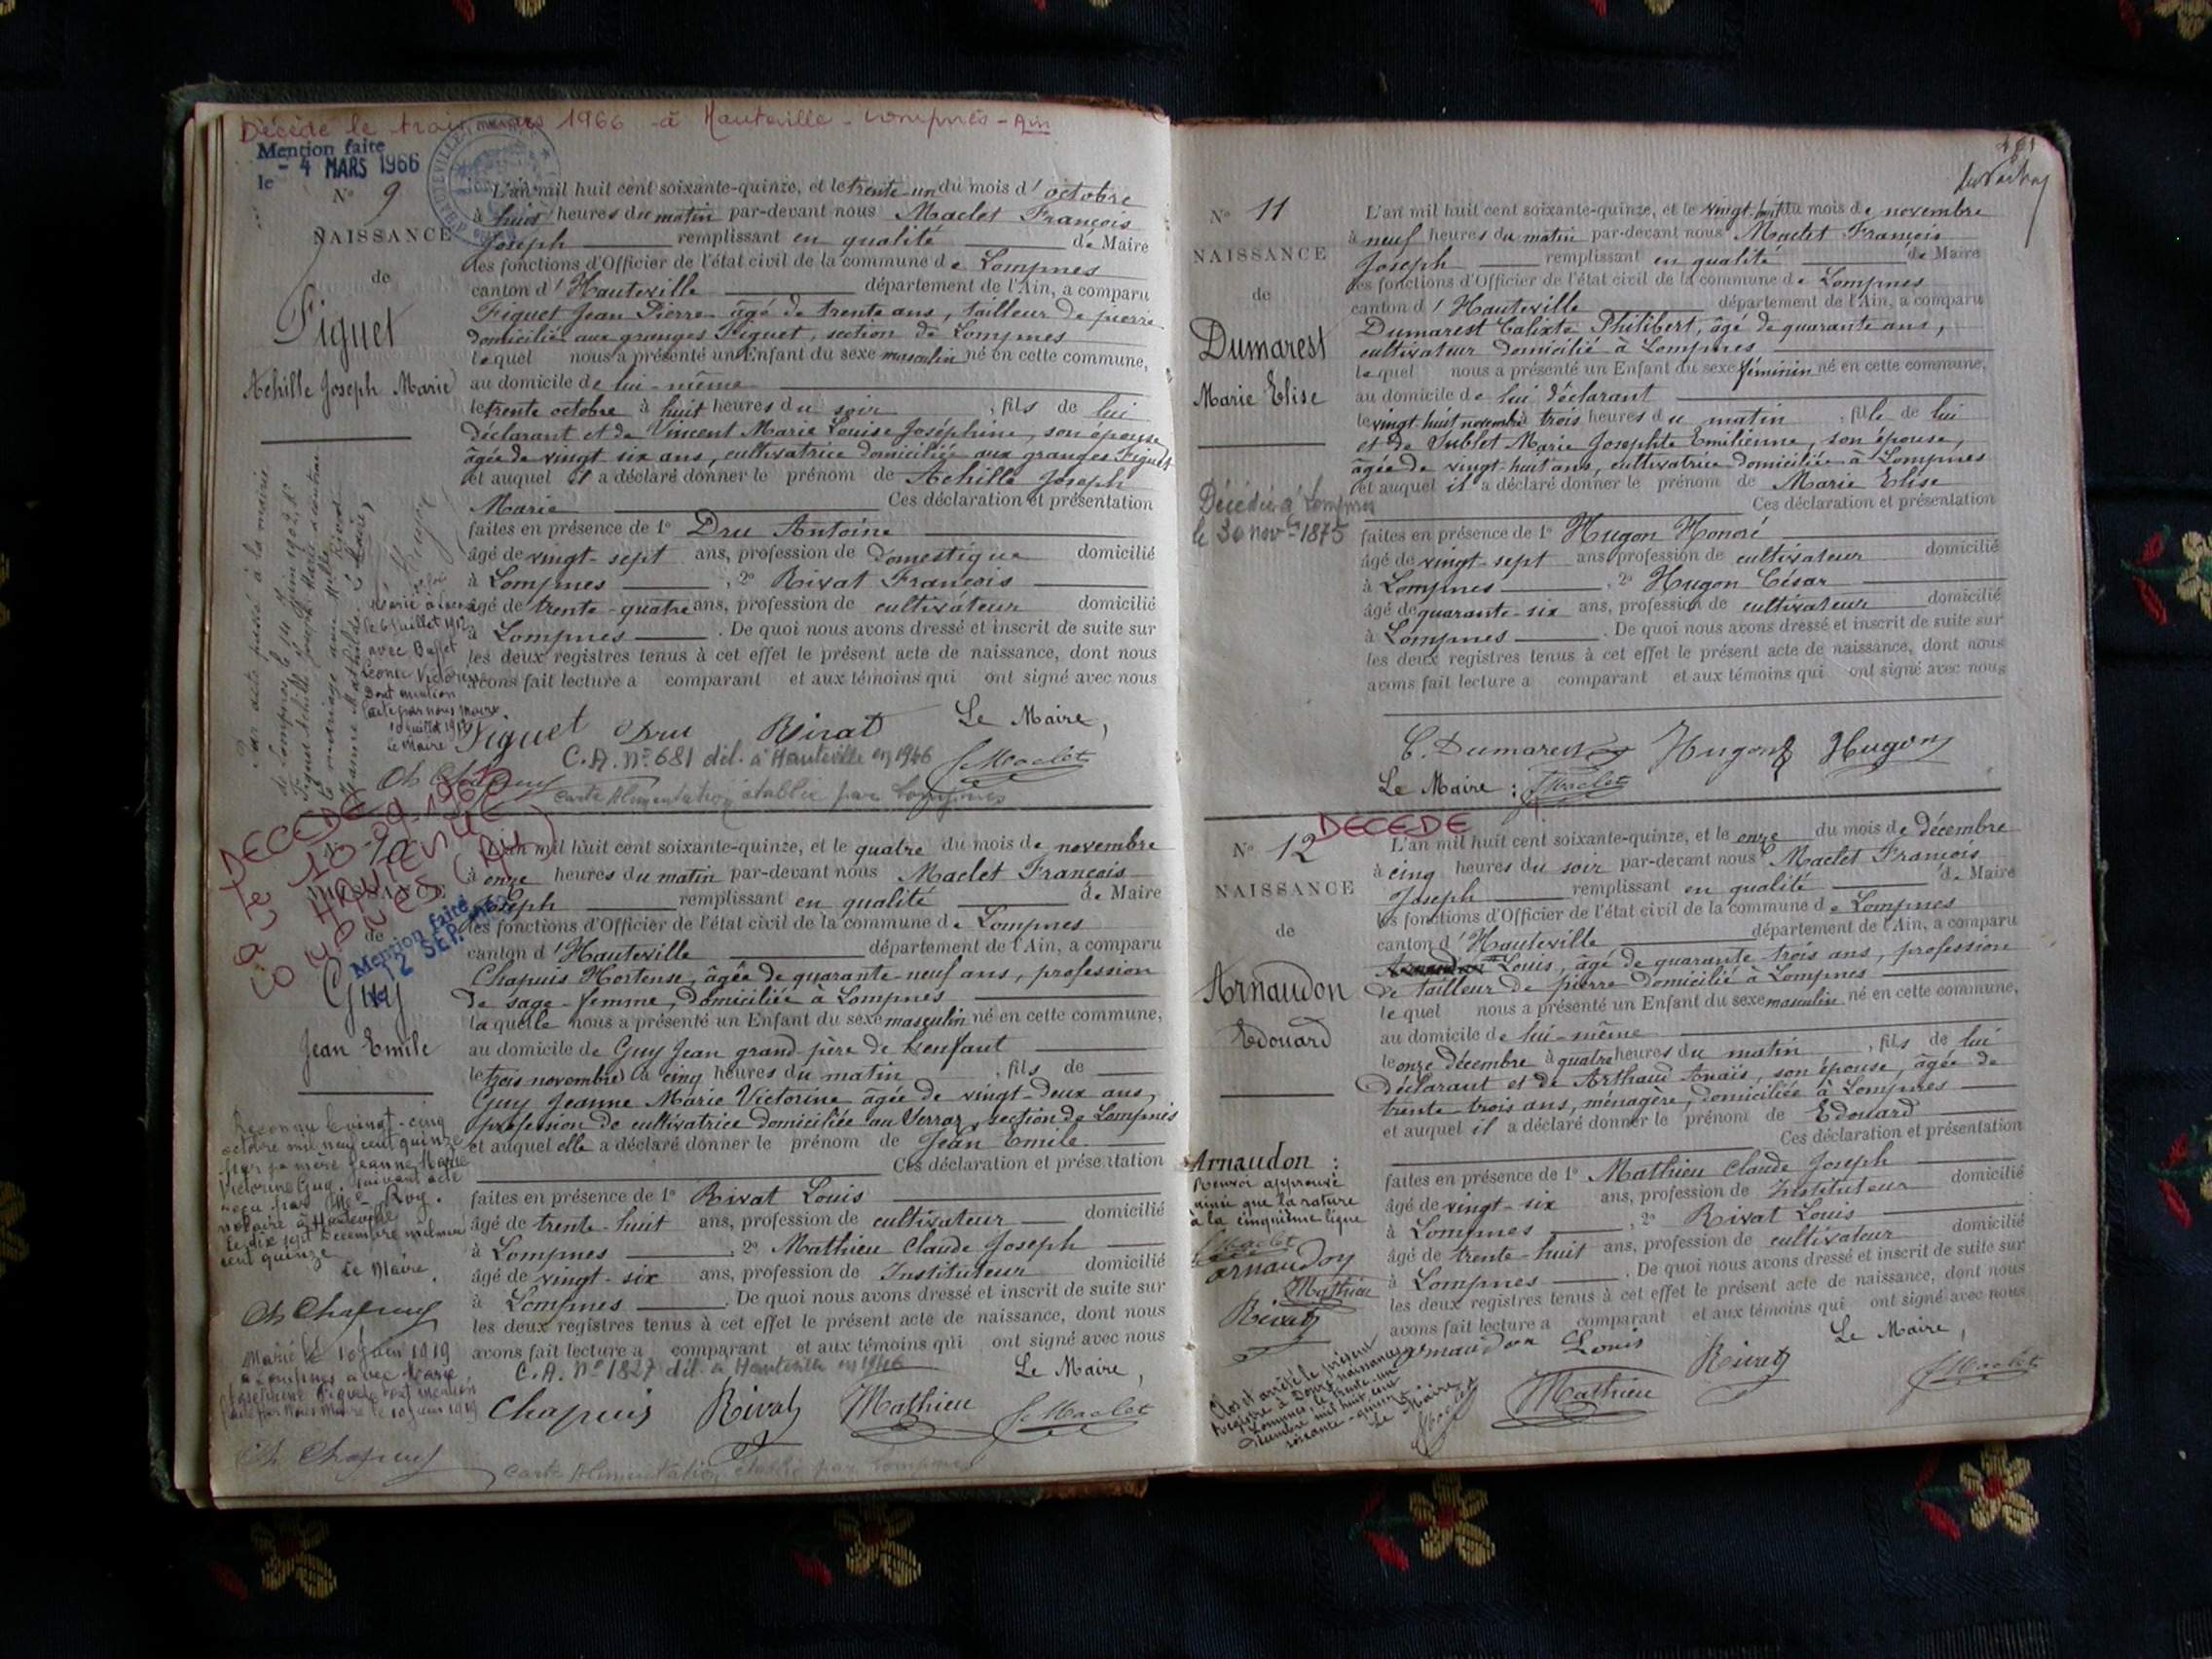 Décédé le trois mars 1966 à Hauteville-Lompnès-Ain
Mention faite
le - 4 MARS 1966
N° 9
NAISSANCE
de
Figuet
Achille Joseph Marie
L'an mil huit cent soixante-quinze, et le trente-un du mois d'octobre
à huit heures du matin par-devant nous Maclet François
Joseph remplissant en qualité de Maire
les fonctions d'Officier de l'état civil de la commune de Lompnes
canton d'Hauteville département de l'Ain, a comparu
Figuet Jean Pierre âgé de trente ans, tailleur de pierre
domicilié aux granges Figuet, section de Lompnes
lequel nous a présenté un Enfant du sexe masculin né en cette commune,
au domicile de lui-même
le trente octobre à huit heures du soir, fils de lui
déclarant et de Vincent Marie Louise Joséphine, son épouse
âgée de vingt six ans, cultivatrice domiciliée aux granges Figuet
et auquel il a déclaré donner le prénom de Achille Joseph
Marie Ces déclaration et présentation
faites en présence de 1° Dru Antoine
âgé de vingt-sept ans, profession de domestique domicilié
à Lompnes, 2° Rivat François
âgé de trente-quatre ans, profession de cultivateur domicilié
à Lompnes. De quoi nous avons dressé et inscrit de suite sur
les deux registres tenus à cet effet le présent acte de naissance, dont nous
avons fait lecture a comparant et aux témoins qui ont signé avec nous
Le Maire,
Figuet Dru Rivat
C.A. N° 681 dél. à Hauteville en 1946
J Maclet
Carte Alimentation établie par Lompnes
Par acte passé à la mairie
de Lompnes le 14 juin 1902,
Figuet Achille Joseph Marie a contracté
mariage avec
Jeanne Mathilde. Le Maire,
Marié à
le 6 Juillet 1912
avec Buffet
Léonie Victorine
Dont mention
faite par nous Maire.
10 juillet 1912
Le Maire
Ch Chapuy
DECEDE
le 10-9-1960
à HAUTEVILLE
LOMPNES (Ain)
Mention faite
le 12 SEP.
de
Guy
Jean Emile
L'an mil huit cent soixante-quinze, et le quatre du mois de novembre
à onze heures du matin par-devant nous Maclet François
Joseph remplissant en qualité de Maire
les fonctions d'Officier de l'état civil de la commune de Lompnes
canton d'Hauteville département de l'Ain, a comparu
Chapuis Hortense, âgée de quarante-neuf ans, profession
de sage-femme, domiciliée à Lompnes
laquelle nous a présenté un Enfant du sexe masculin né en cette commune,
au domicile de Guy Jean grand-père de l'enfant
le trois novembre à cinq heures du matin, fils de
Guy Jeanne Marie Victorine âgée de vingt-deux ans,
profession de cultivatrice domiciliée au Verray, section de Lompnes
et auquel elle a déclaré donner le prénom de Jean Emile
Ces déclaration et présentation
faites en présence de 1° Rivat Louis
âgé de trente-huit ans, profession de cultivateur domicilié
à Lompnes, 2° Mathieu Claude Joseph
âgé de vingt-six ans, profession de Instituteur domicilié
à Lompnes. De quoi nous avons dressé et inscrit de suite sur
les deux registres tenus à cet effet le présent acte de naissance, dont nous
avons fait lecture a comparant et aux témoins qui ont signé avec nous
C.A. N° 1827 dél. à Hauteville en 1946
Le Maire,
Chapuis Rivat Mathieu J Maclet
Carte Alimentation établie par Lompnes
Reconnu le vingt-cinq
octobre mil neuf cent quinze
par sa mère Jeanne Marie
Victorine Guy, suivant acte
reçu par Me Roy,
notaire à Hauteville
Le dix sept Décembre mil neuf
cent quinze
Le Maire,
Ch Chapuy
Marié le 10 Juin 1919
à Lompnes avec Marie
Josephine Figuet dont mention
faite par nous Maire le 10 Juin 1919
Ch Chapuy
N° 11
NAISSANCE
de
Dumarest
Marie Elise
Décédée à Lompnes
le 30 nov. 1875
L'an mil huit cent soixante-quinze, et le vingt-huit du mois de novembre
à neuf heures du matin par-devant nous Maclet François
Joseph remplissant en qualité de Maire
les fonctions d'Officier de l'état civil de la commune de Lompnes
canton d'Hauteville département de l'Ain, a comparu
Dumarest Calixte Philibert, âgé de quarante ans,
cultivateur domicilié à Lompnes
lequel nous a présenté un Enfant du sexe féminin né en cette commune,
au domicile de lui déclarant
le vingt huit novembre à trois heures du matin, fille de lui
et de Sublet Marie Josephte Emilienne, son épouse,
âgée de vingt-huit ans, cultivatrice domiciliée à Lompnes
et auquel il a déclaré donner le prénom de Marie Elise
Ces déclaration et présentation
faites en présence de 1° Hugon Honoré
âgé de vingt-sept ans profession de cultivateur domicilié
à Lompnes, 2° Hugon César
âgé de quarante-six ans, profession de cultivateur domicilié
à Lompnes. De quoi nous avons dressé et inscrit de suite sur
les deux registres tenus à cet effet le présent acte de naissance, dont nous
avons fait lecture a comparant et aux témoins qui ont signé avec nous
C. Dumarest Hugon Hugon
Le Maire : J Maclet
DECEDE
N° 12
NAISSANCE
de
Arnaudon
Edouard
L'an mil huit cent soixante-quinze, et le onze du mois de décembre
à cinq heures du soir par-devant nous Maclet François
Joseph remplissant en qualité de Maire
les fonctions d'Officier de l'état civil de la commune de Lompnes
canton d'Hauteville département de l'Ain, a comparu
Louis, âgé de quarante-trois ans, profession
de tailleur de pierre domicilié à Lompnes
lequel nous a présenté un Enfant du sexe masculin né en cette commune,
au domicile de lui-même
le onze décembre à quatre heures du matin, fils de lui
déclarant et de Arthaud Anaïs, son épouse, âgée de
trente trois ans, ménagère, domiciliée à Lompnes
et auquel il a déclaré donner le prénom de Edouard
Ces déclaration et présentation
faites en présence de 1° Mathieu Claude Joseph
âgé de vingt-six ans, profession de Instituteur domicilié
à Lompnes, 2° Rivat Louis
âgé de trente-huit ans, profession de cultivateur domicilié
à Lompnes. De quoi nous avons dressé et inscrit de suite sur
les deux registres tenus à cet effet le présent acte de naissance, dont nous
avons fait lecture a comparant et aux témoins qui ont signé avec nous
Arnaudon Louis Rivat Le Maire,
Mathieu J Maclet
Arnaudon :
Renvoi approuvé
ainsi que la rature
à la cinquième ligne
J Maclet
arnaudon
Mathieu
Rivat
Clos et arrêté le présent
registre à Douze naissances
Lompnes, le trente-un
décembre mil huit cent
soixante-quinze.
Le Maire,
J Maclet